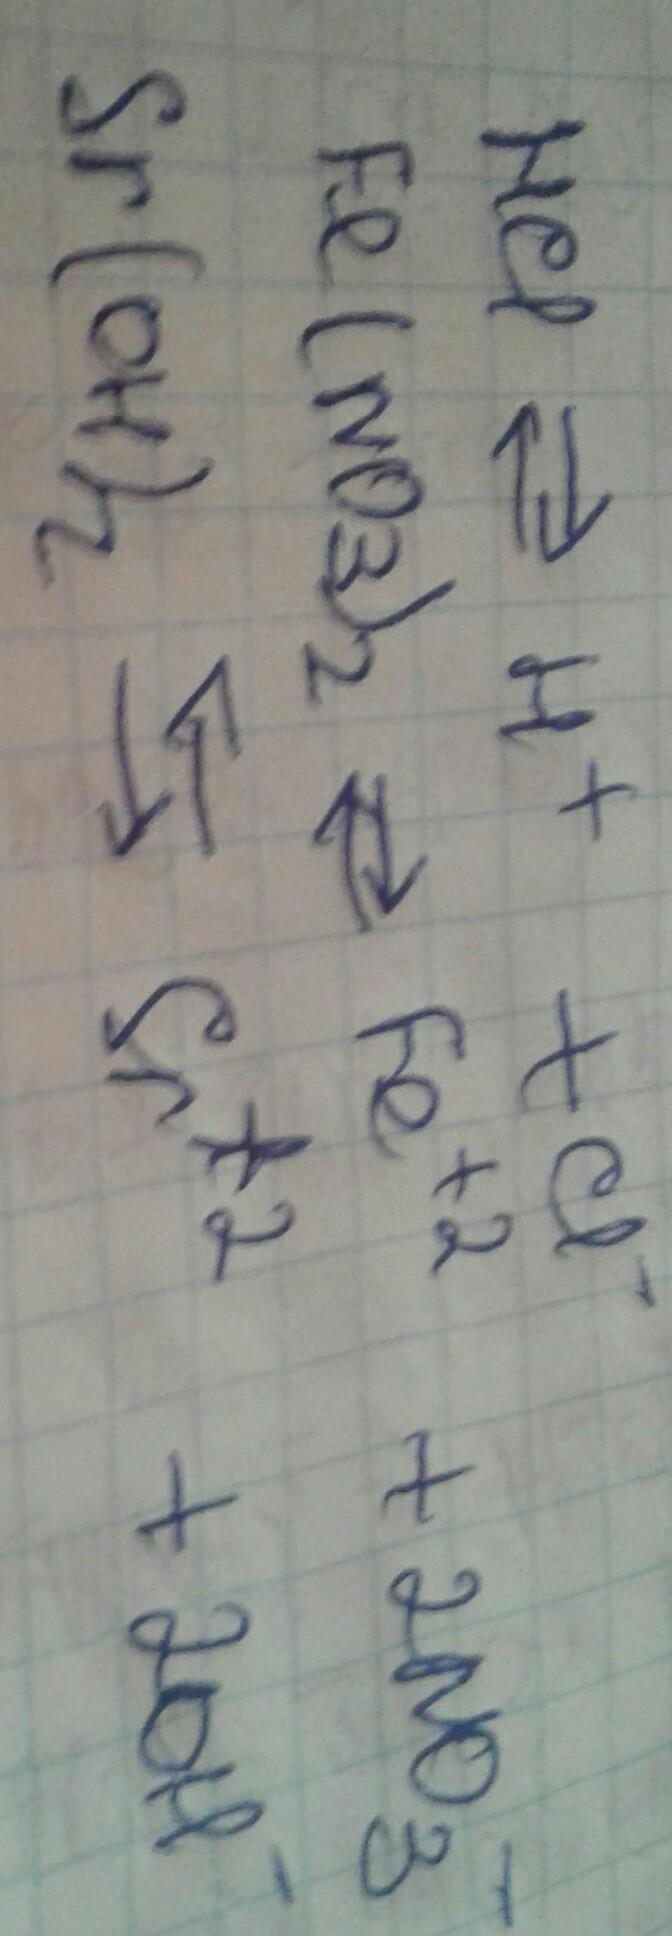 HCl ⇄ H⁺ + Cl⁻
Fe(NO₃)₂ ⇄ Fe⁺² + 2NO₃⁻
Sr(OH)₂ ⇄ Sr⁺² + 2OH⁻